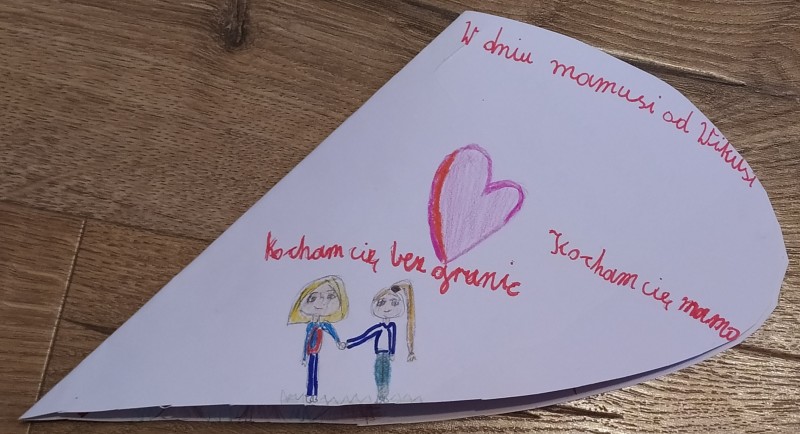 W dniu mamusi od Wikusi
Kocham cię bez granic
Kocham cię mamo